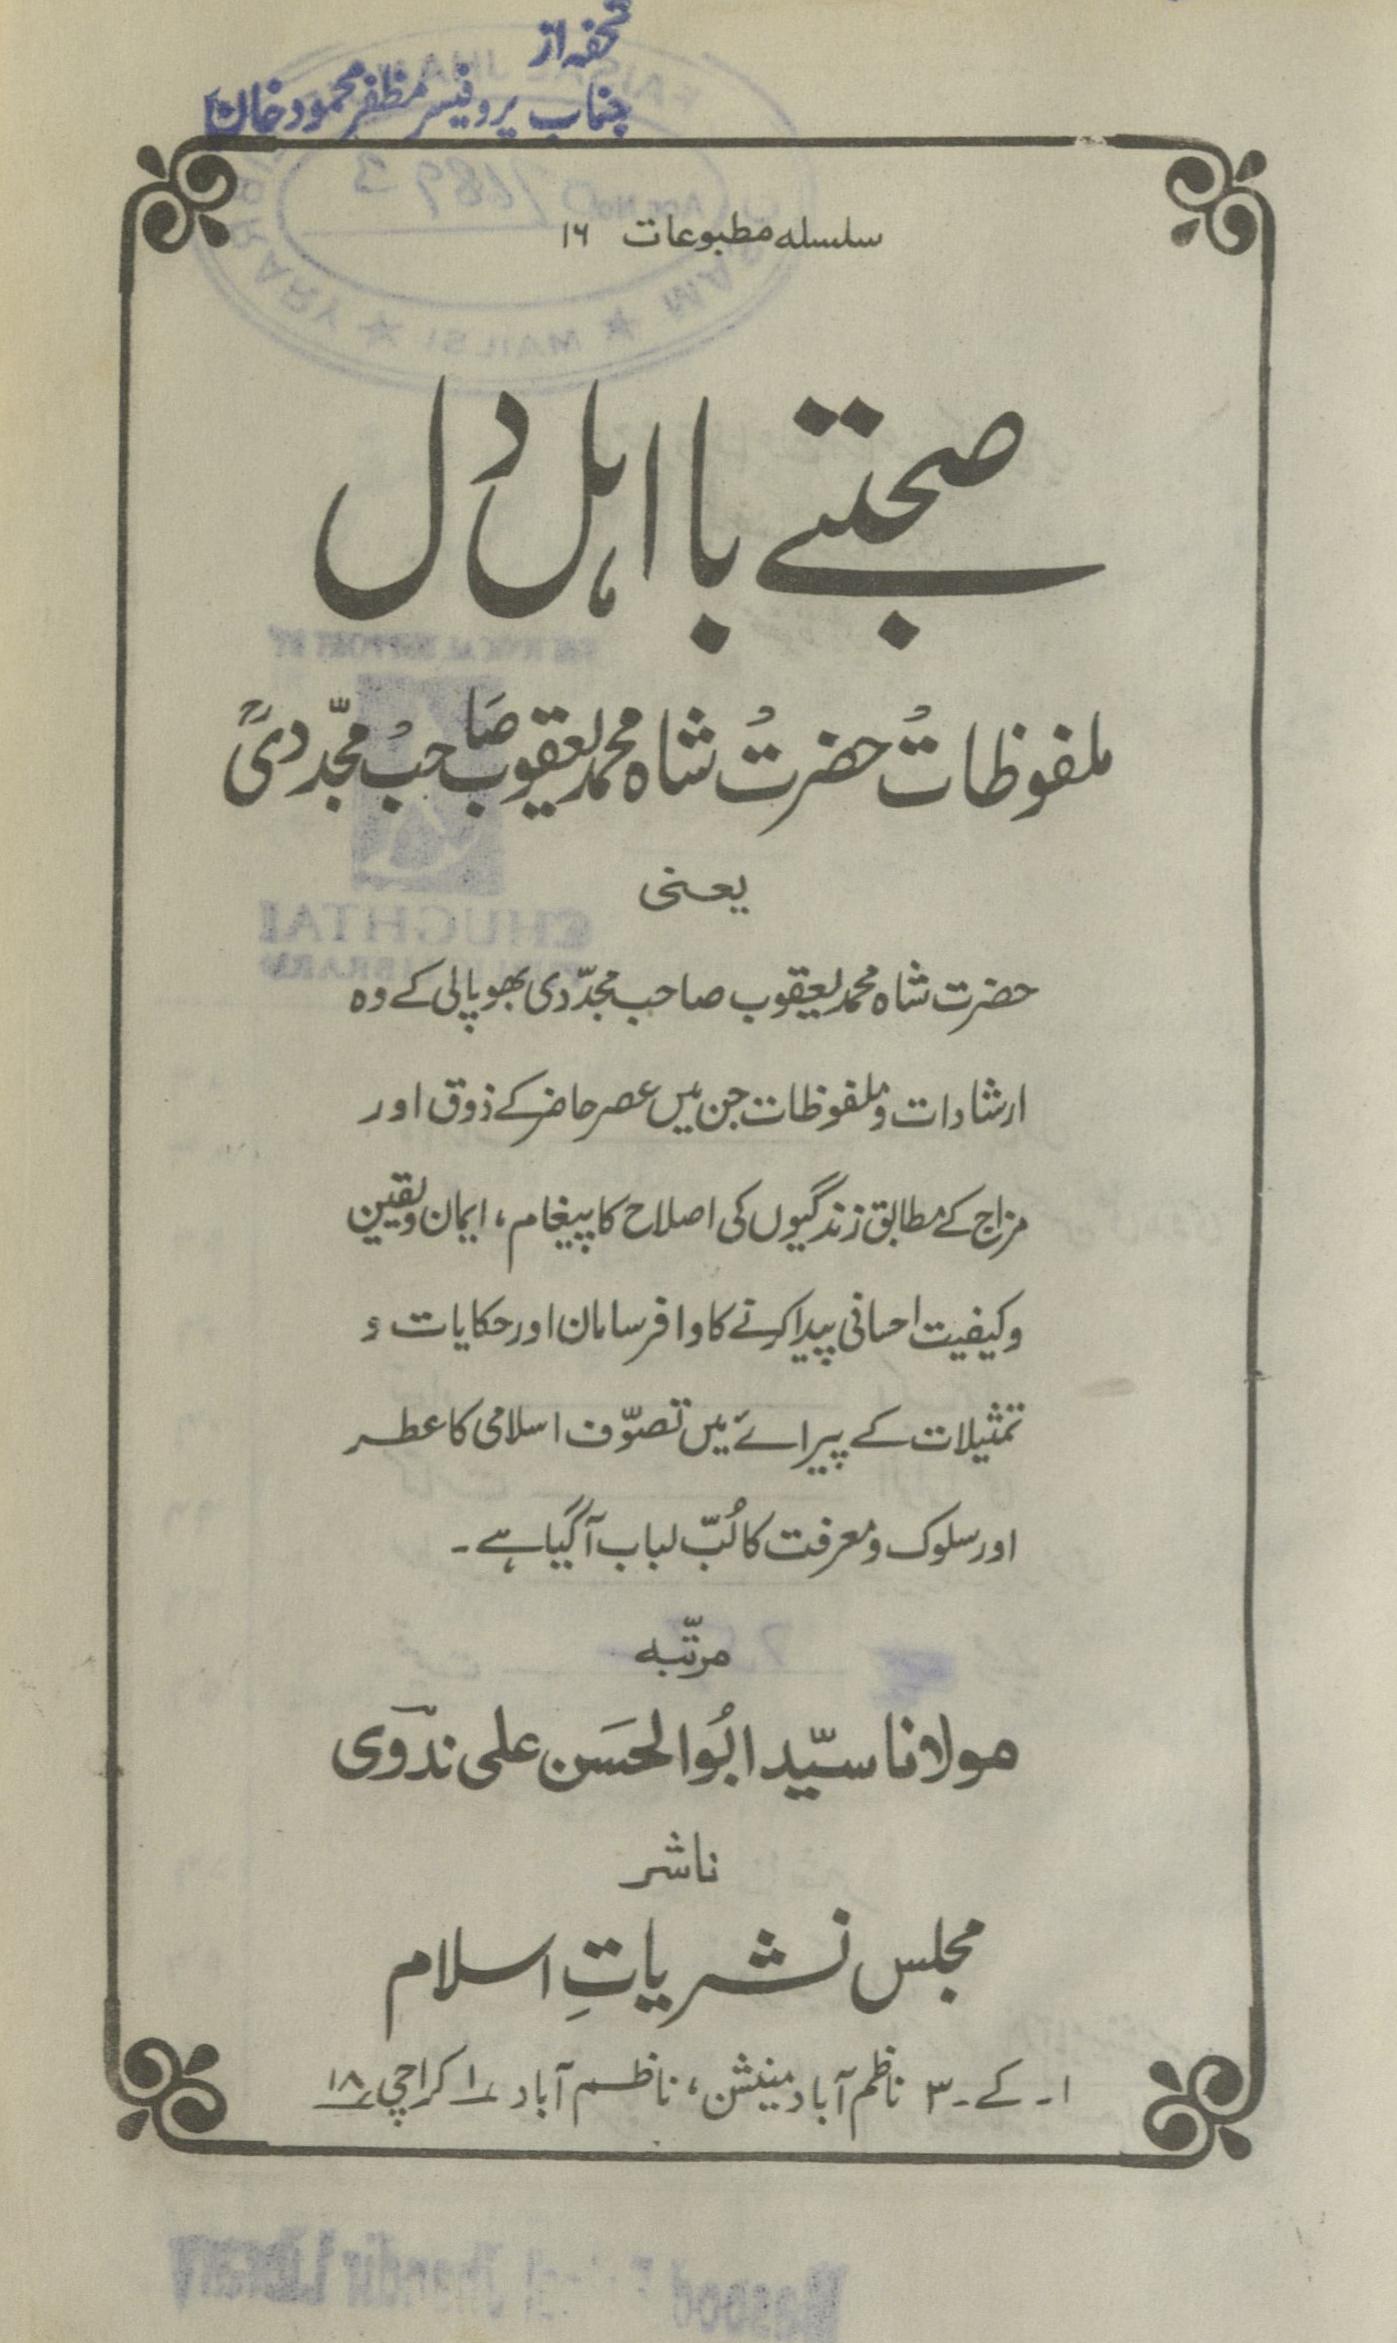 تحفہ از
جناب پروفیسر مظفر محمود خان
سلسلہ مطبوعات ۱۶
صحبتے با اہل دل
ملفوظات حضرت شاہ محمد یعقوب صاحب مجدّدیؒ
یعنی
حضرت شاہ محمد یعقوب صاحب مجدّدی بھوپالی کے وہ
ارشادات و ملفوظات جن میں عصر حاضر کے ذوق اور
مزاج کے مطابق زندگیوں کی اصلاح کا پیغام، ایمان و یقین
و کیفیت احسانی پیدا کرنے کا وافر سامان اور حکایات و
تمثیلات کے پیرائے میں تصوّف اسلامی کا عطر
اور سلوک و معرفت کا لُبّ لباب آگیا ہے۔
مرتّبہ
مولانا سیّد ابُوالحسَن علی ندوی
ناشر
مجلس نشریاتِ اسلام
۱۔ کے۔ ۳ ناظم آباد مینشن، ناظم آباد ۱ کراچی ۱۸
CHUGHTAI
MAILSI